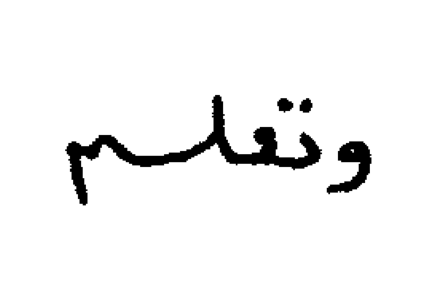 وتعلم